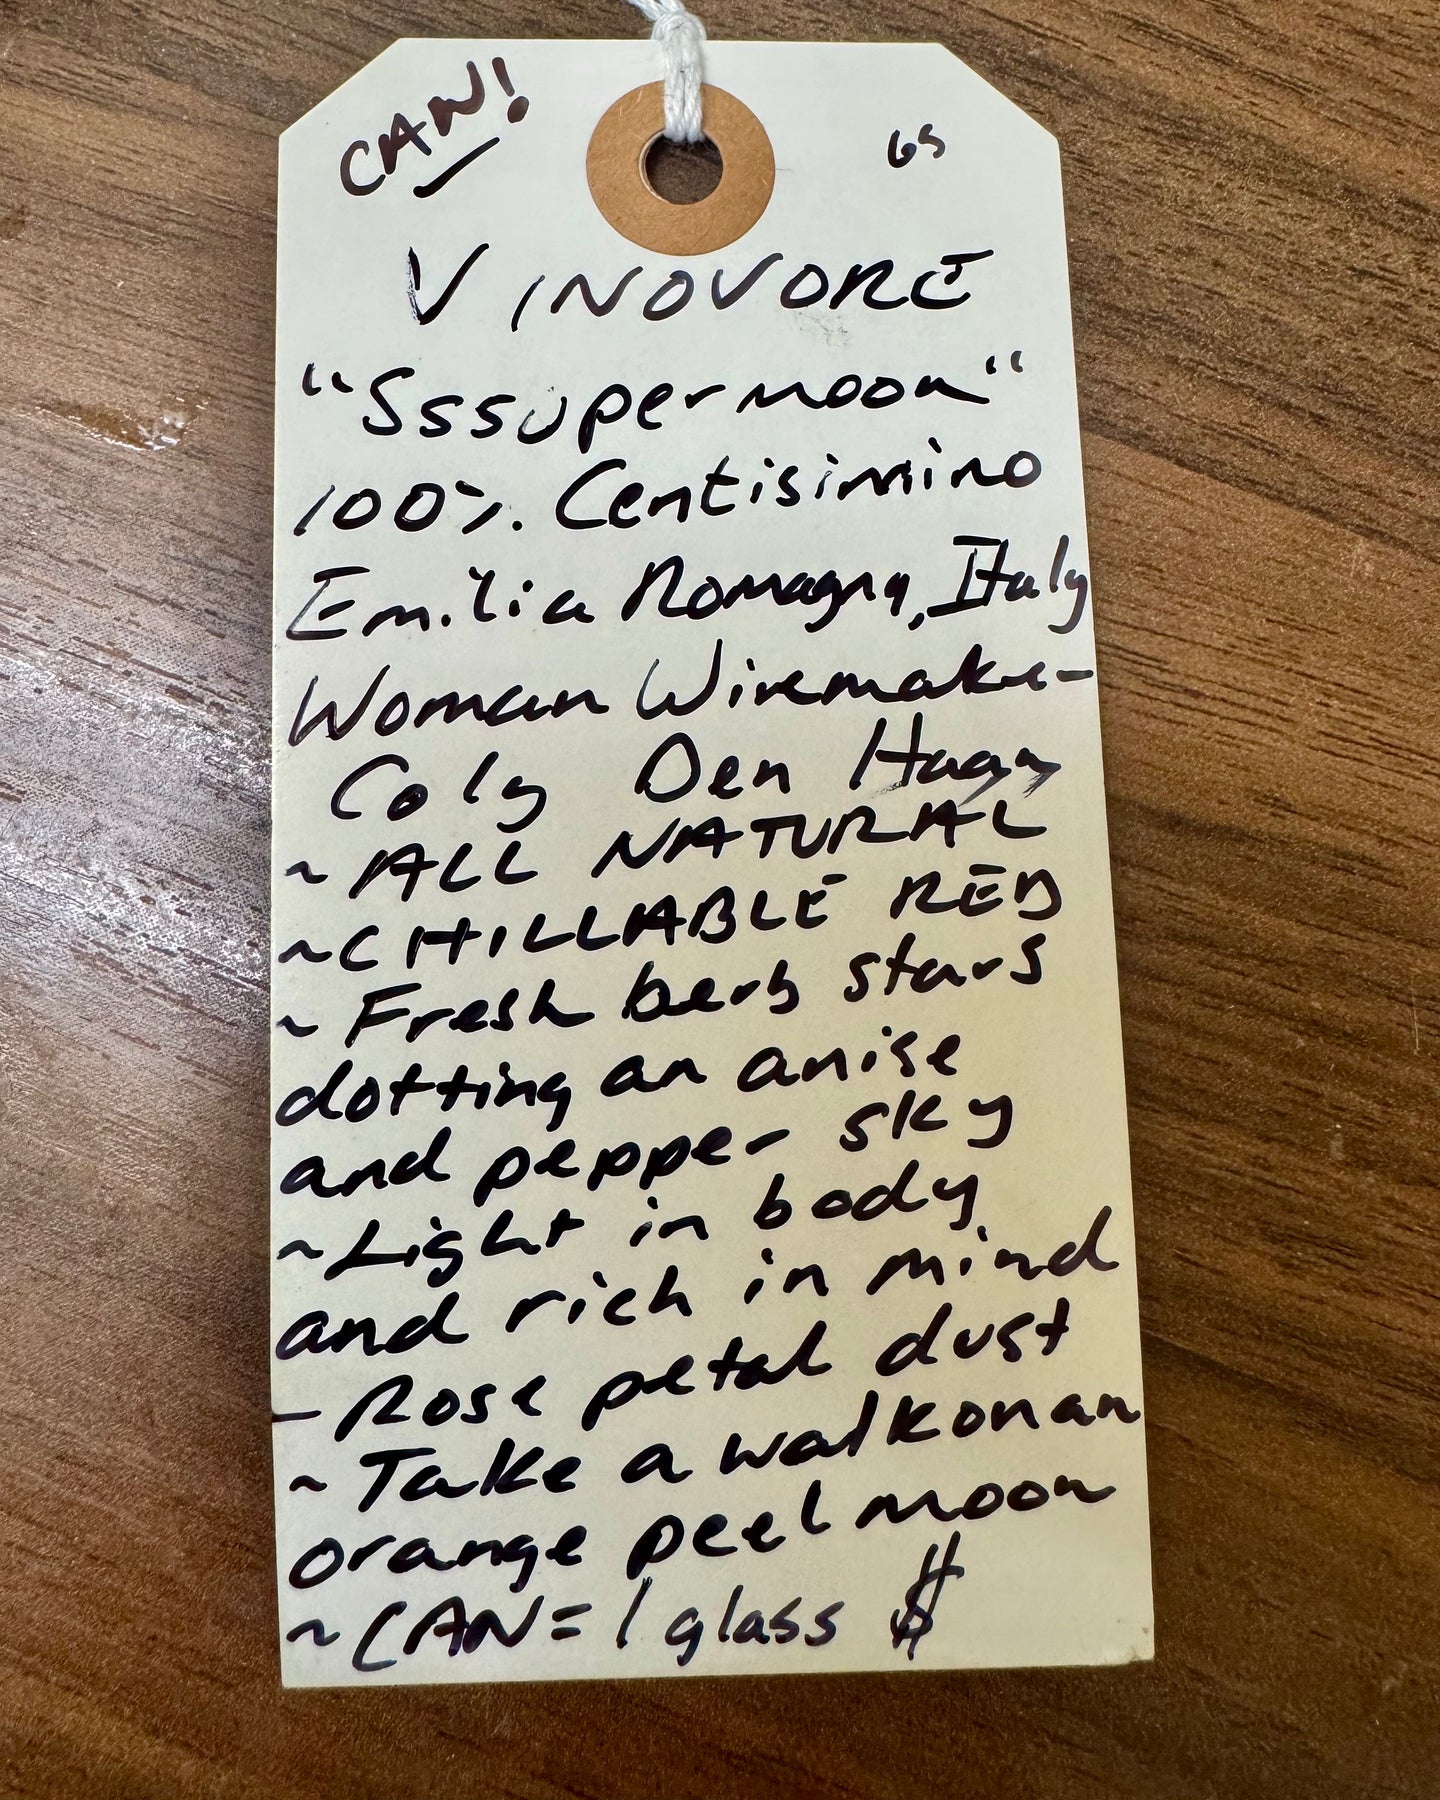 CAN!
65
VINOVORE
"Sssupermoon"
100% Centisimino
Emilia Romagna, Italy
Woman Winemaker-
Coly Den Haan
~ALL NATURAL
~CHILLABLE RED
~Fresh berb stars
dotting an anise
and pepper sky
~Light in body
and rich in mind
-Rose petal dust
~Take a walk on an
orange peel moon
~CAN=1 glass $